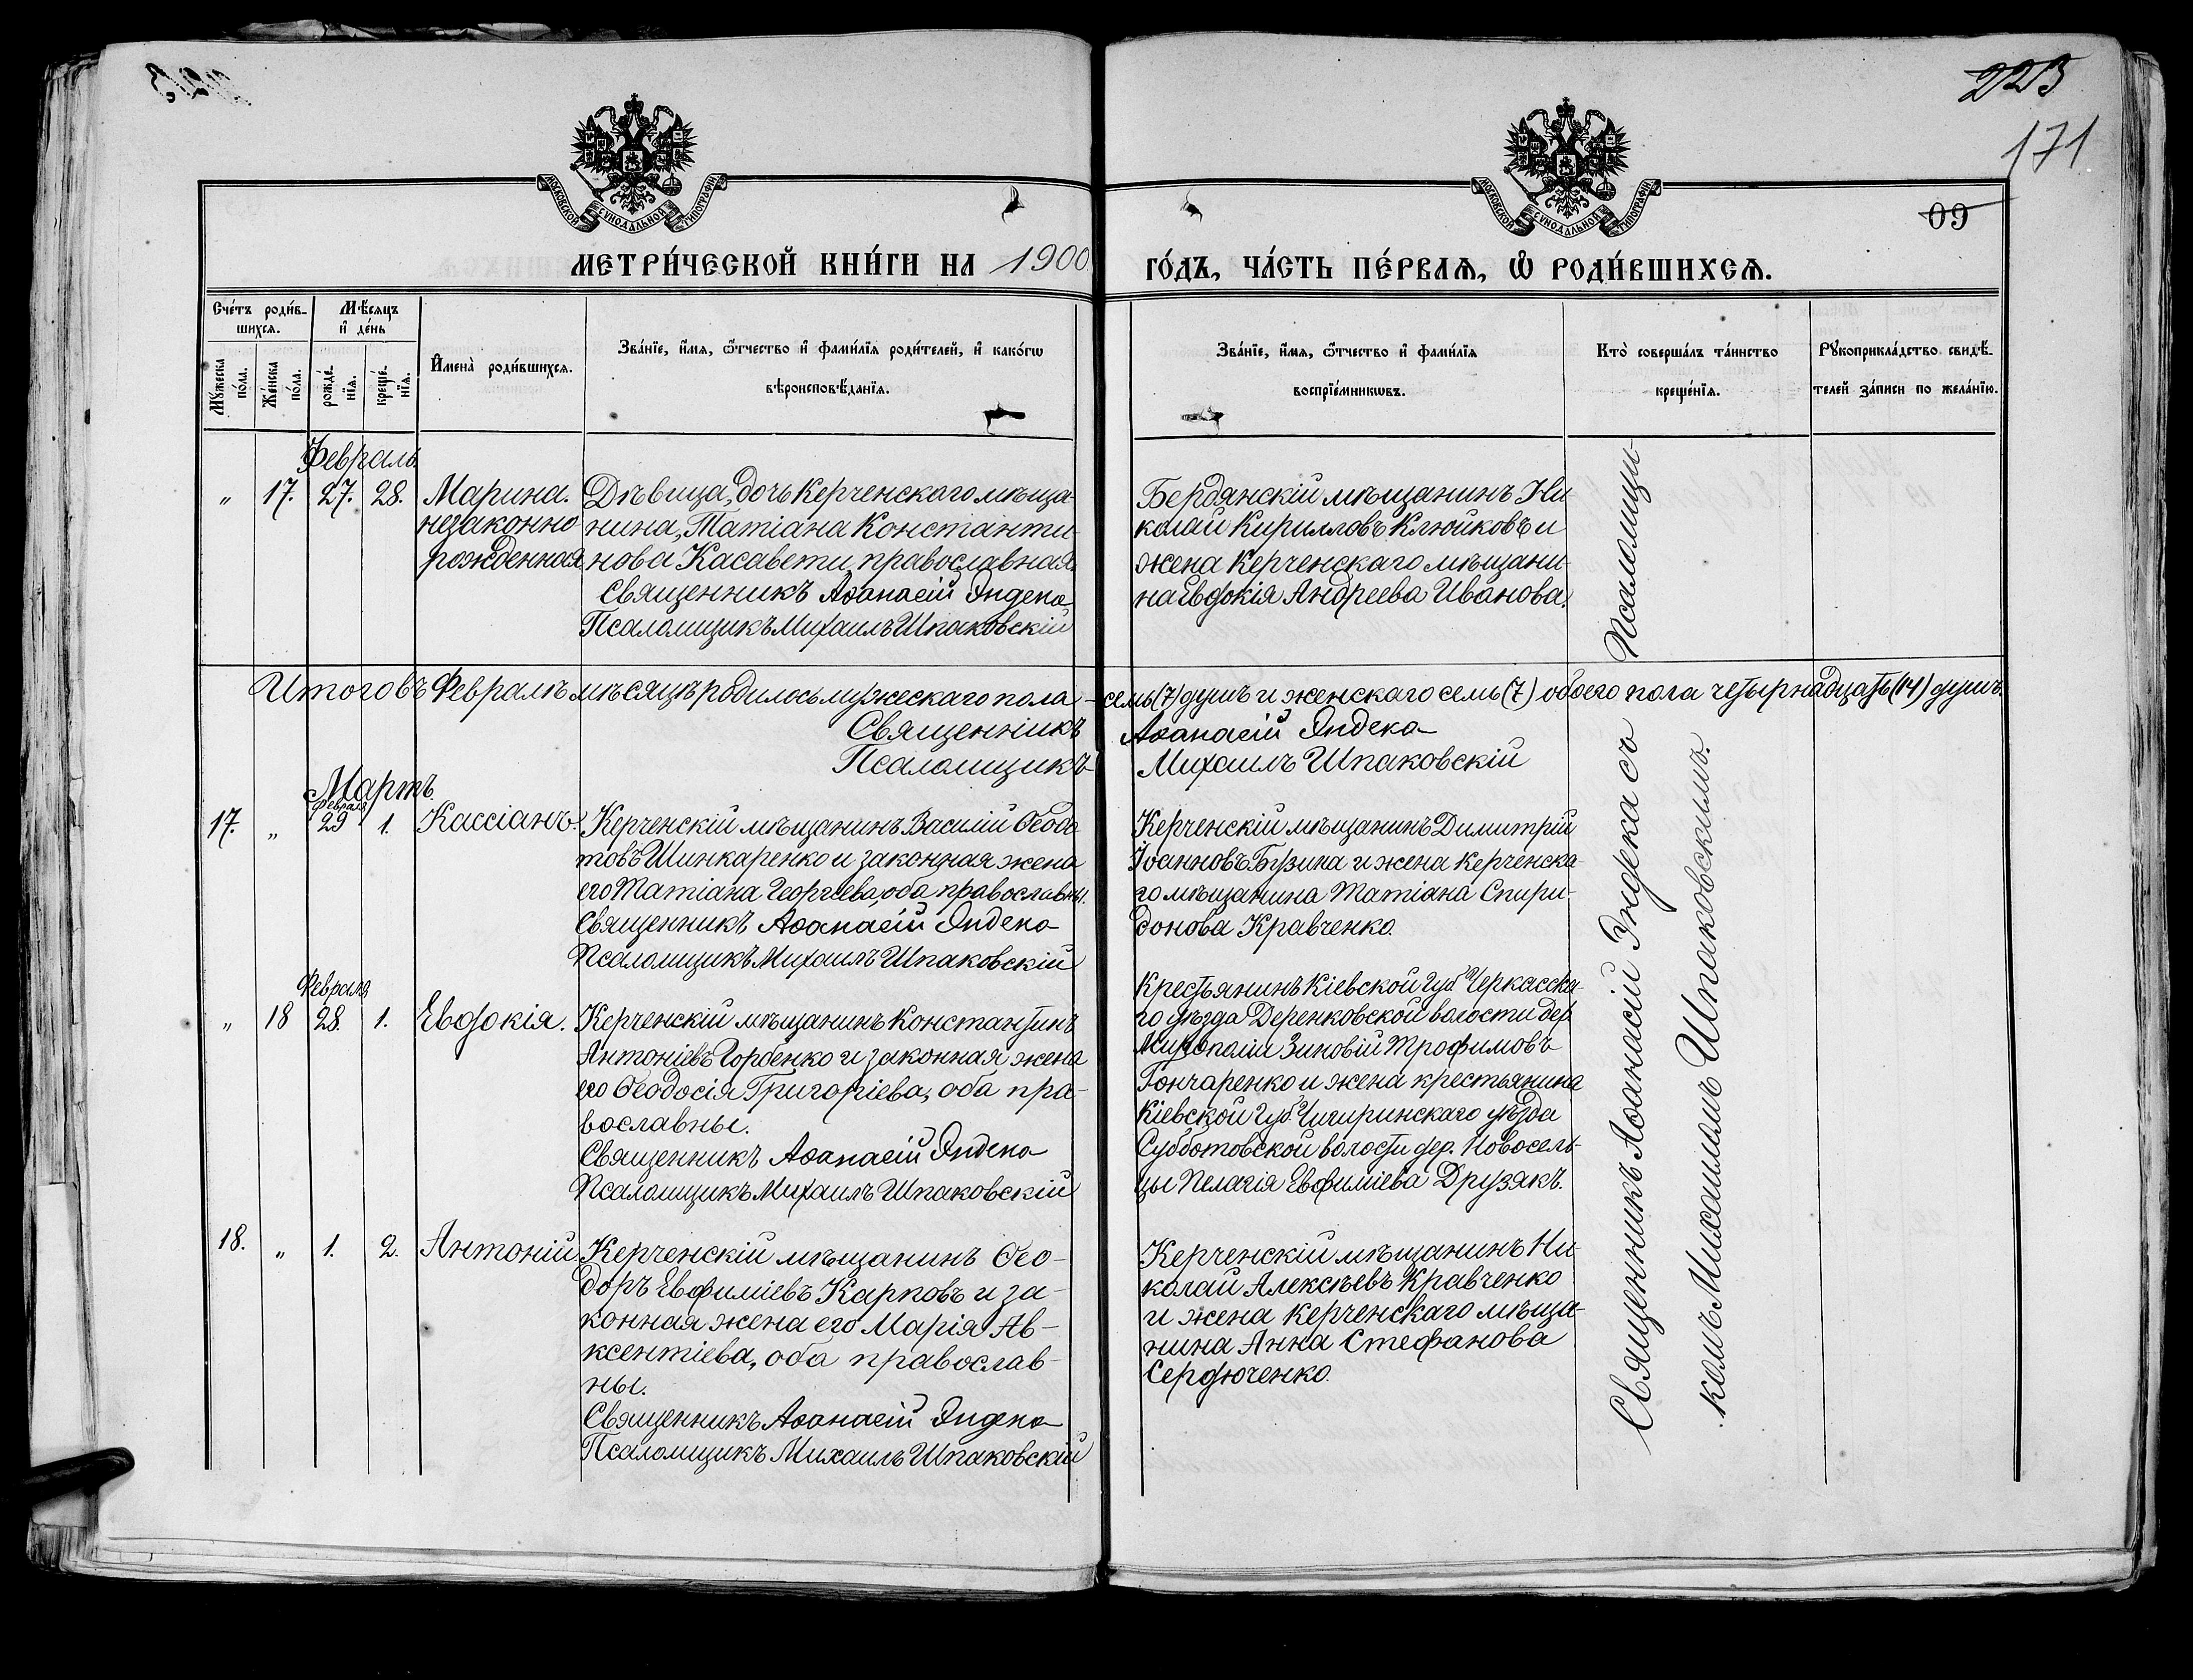 223
171
09
МОСКОВСКОЙ СУНОДАЛЬНОЙ ТИПОГРАФІИ
МОСКОВСКОЙ СУНОДАЛЬНОЙ ТИПОГРАФІИ
МЕТРИ́ЧЕСКОЙ КНИ́ГИ НА 1900 ГО́ДЪ, ЧА́СТЬ ПЕ́РВАѦ, Ѽ РОДИ́ВШИХСѦ.
Сче́тъ роди́в-
шихсѧ.
Мꙋ́жеска по́ла.
Же́нска по́ла.
Мѣ́сѧцъ
и҆ де́нь
рожде́-
нїѧ.
креще́-
нїѧ.
И҆мена̀ роди́вшихсѧ.
Зва́нїе, и҆́мѧ, ѻ҆́тчество и҆ фами́лїѧ роди́телей, и҆ како́гѡ
вѣроисповѣ́данїѧ.
Зва́нїе, и҆́мѧ, ѻ҆́тчество и҆ фами́лїѧ
воспрїе́мникѡвъ.
Кто̀ соверша́лъ та́инство
креще́нїѧ.
Рꙋкоприкла́дство свидѣ́-
телей за́писи по жела́нїю.
Февраль.
„ 17. 27. 28. Марина.
незаконно
рожденная
Дѣвица, дочь Керченскаго мѣща-
нина, Татіана Константи-
нова Касавети, православная.
Священникъ Аѳанасій Эндека
Псаломщикъ Михаилъ Шпаковскій
Бердянскій мѣщанинъ Ни-
колай Кирилловъ Клюйковъ и
жена Керченскаго мѣщани-
на Евдокія Андреева Иванова.
Итого въ Февралѣ мѣсяцѣ родилось мужескаго пола – семь (7) душъ и женскаго семь (7) обоего пола четырнадцать (14) душъ.
Священникъ Аѳанасій Эндека
Псаломщикъ Михаилъ Шпаковскій
Мартъ.
Февраля
17. „ 29 1. Кассіанъ.
Керченскій мѣщанинъ Василій Ѳеодо-
товъ Шинкаренко и законная жена
его Татіана Георгіева, оба православны.
Священникъ Аѳанасій Эндека
Псаломщикъ Михаилъ Шпаковскій
Керченскій мѣщанинъ Димитрій
Іоанновъ Бузина и жена керченска-
го мѣщанина Татіана Спири-
донова Кравченко.
Февраля
„ 18 28. 1. Евдокія.
Керченскій мѣщанинъ Константинъ
Антоніевъ Горбенко и законная жена
его Ѳеодосія Григоріева, оба пра-
вославны.
Священникъ Аѳанасій Эндека
Псаломщикъ Михаилъ Шпаковскій
Крестьянинъ Кіевской губ. Черкасска-
го уѣзда Деренковской волости дер.
Зиновій Трофимовъ
Гончаренко и жена крестьянина
Кіевской губ. Чигиринскаго уѣзда
Субботовской волости дер. Новосель-
цы Пелагія Евфиміева Друзякъ.
18. „ 1. 2. Антоній.
Керченскій мѣщанинъ Ѳео-
доръ Евфиміевъ Карповъ и за-
конная жена его Марія Ав-
ксентіева, оба православ-
ны.
Священникъ Аѳанасій Эндека
Псаломщикъ Михаилъ Шпаковскій
Керченскій мѣщанинъ Ни-
колай Алексѣевъ Кравченко
и жена керченскаго мѣща-
нина Анна Стефанова
Сердюченко.
Священникъ Аѳанасій Эндека съ Псаломщи-
комъ Михаиломъ Шпаковскимъ.